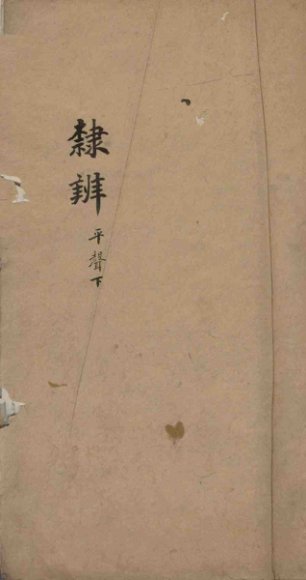 隸辨
平聲下